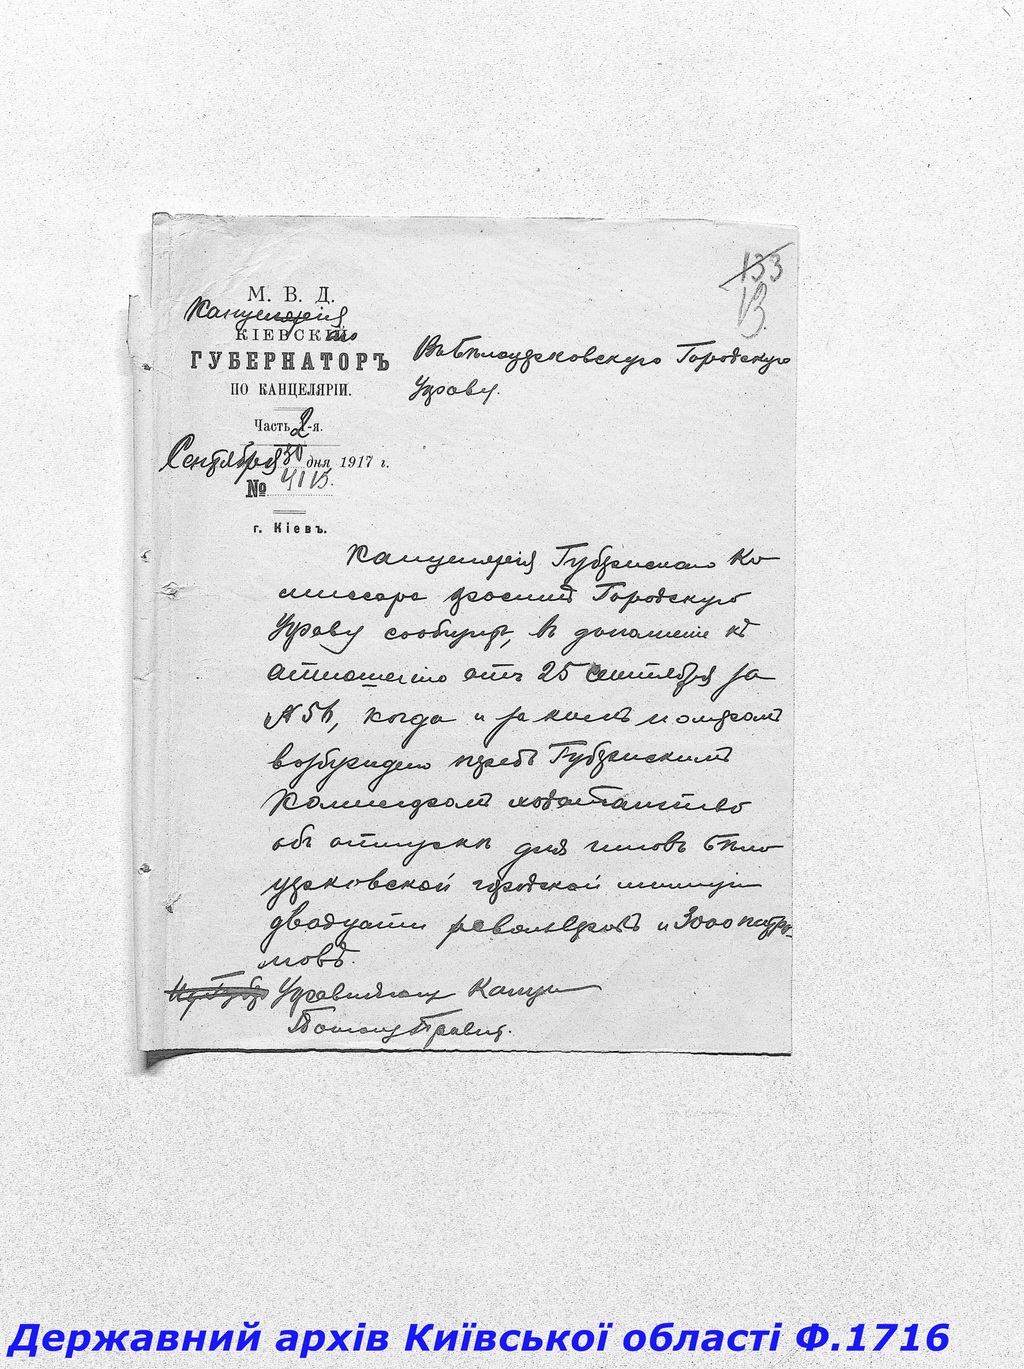 133
13
М. В. Д.
Канцелярія
КІЕВСКІЙ
ГУБЕРНАТОРЪ
ПО КАНЦЕЛЯРІИ.
Часть 2-я.
Сентября 30 дня 1917 г.
№ 4115.
г. Кіевъ.
Въ Бѣлоцерковскую Городскую
Управу.
Канцелярія Губернскаго Ко
миссара проситъ Городскую
Управу сообщить, въ дополненіе къ
отношенію отъ 25 Сентября за
№ 56, когда и за какимъ номеромъ
возбуждено передъ Губернскимъ
Комиссаромъ ходатайство
объ отпускѣ для чиновъ Бѣло
церковской городской милиціи
двадцати револьверовъ и 3000 патро-
новъ.
Управляющій Канцел